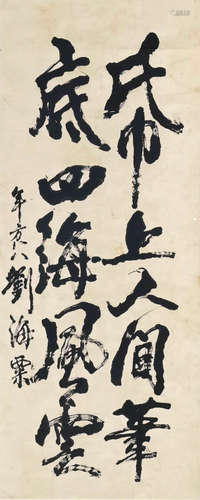 帋上人間筆
底四海風雲
年方八劉海粟